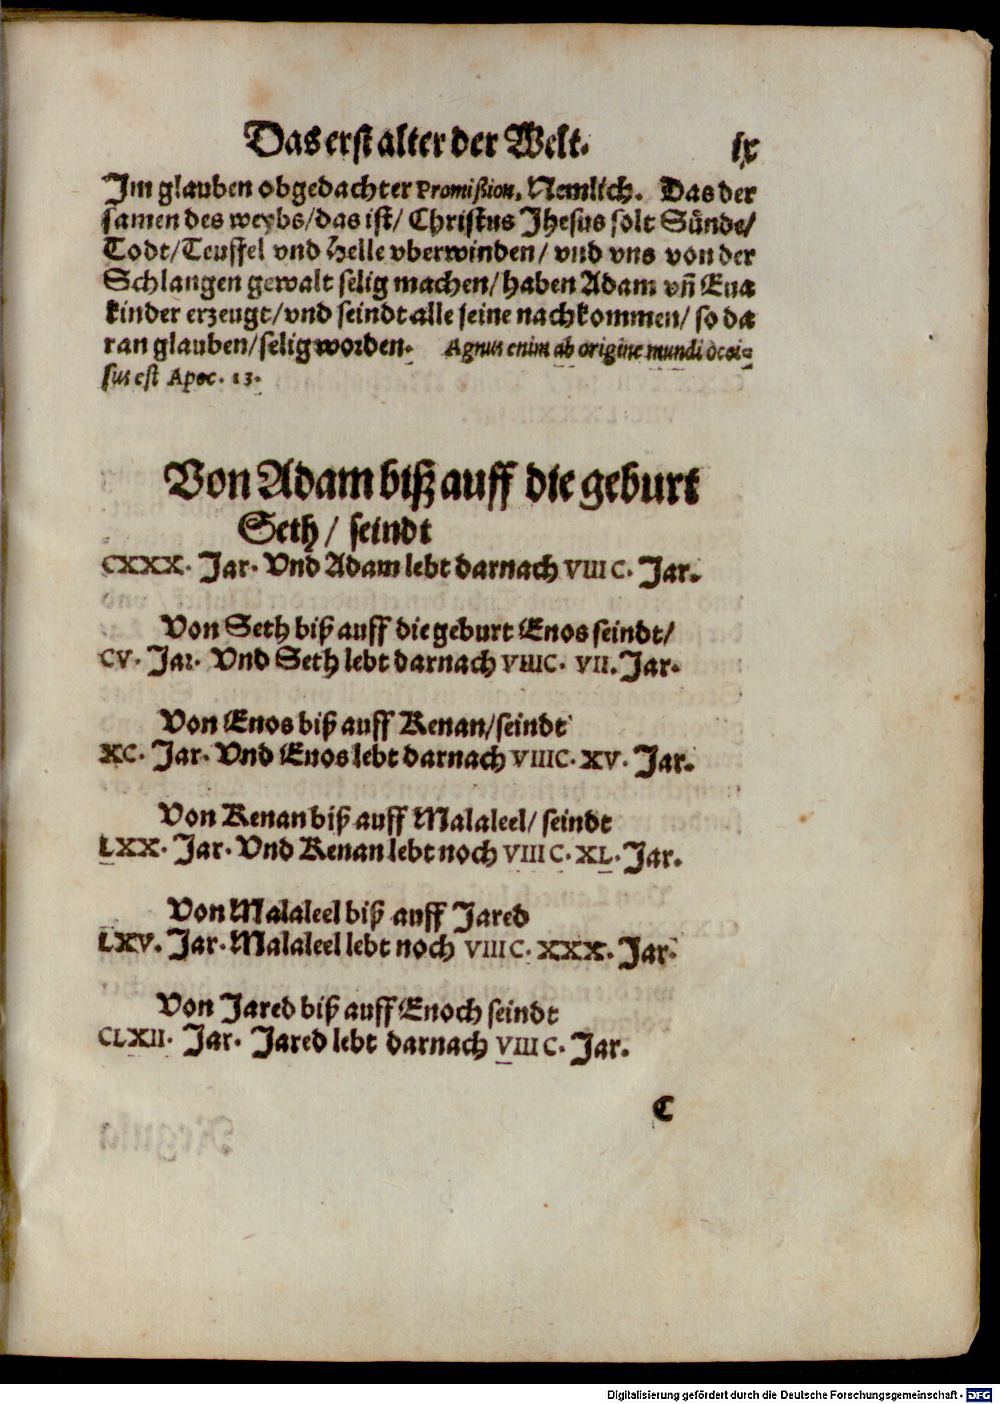 Das erst alter der Welt. ix
Im glauben obgedachter Promißion. Nemlich. Das der
samen des weybs/das ist/ Christus Jhesus solt Sünde/
Todt/Teuffel vnd Helle vberwinden/ vnd vns von der
Schlangen gewalt selig machen/ haben Adam vñ Eua
kinder erzeugt/vnd seindt alle seine nachkommen/ so da
ran glauben/selig worden. Agnus enim ab origine mundi occi=
sus est Apoc. 13.
Von Adam biß auff die geburt
Seth/ seindt
CXXX. Jar. Vnd Adam lebt darnach VIIIC. Jar.
Von Seth biß auff die geburt Enos seindt/
CV. Jar. Vnd Seth lebt darnach VIIIC. VII. Jar.
Von Enos biß auff Kenan/seindt
XC. Jar. Vnd Enos lebt darnach VIIIC. XV. Jar.
Von Kenan biß auff Malaleel/ seindt
LXX. Jar. Vnd Kenan lebt noch VIIIC. XL. Jar.
Von Malaleel biß auff Jared
LXV. Jar. Malaleel lebt noch VIIIC. XXX. Jar.
Von Jared biß auff Enoch seindt
CLXII. Jar. Jared lebt darnach VIIIC. Jar.
C
Digitalisierung gefördert durch die Deutsche Forschungsgemeinschaft - DFG